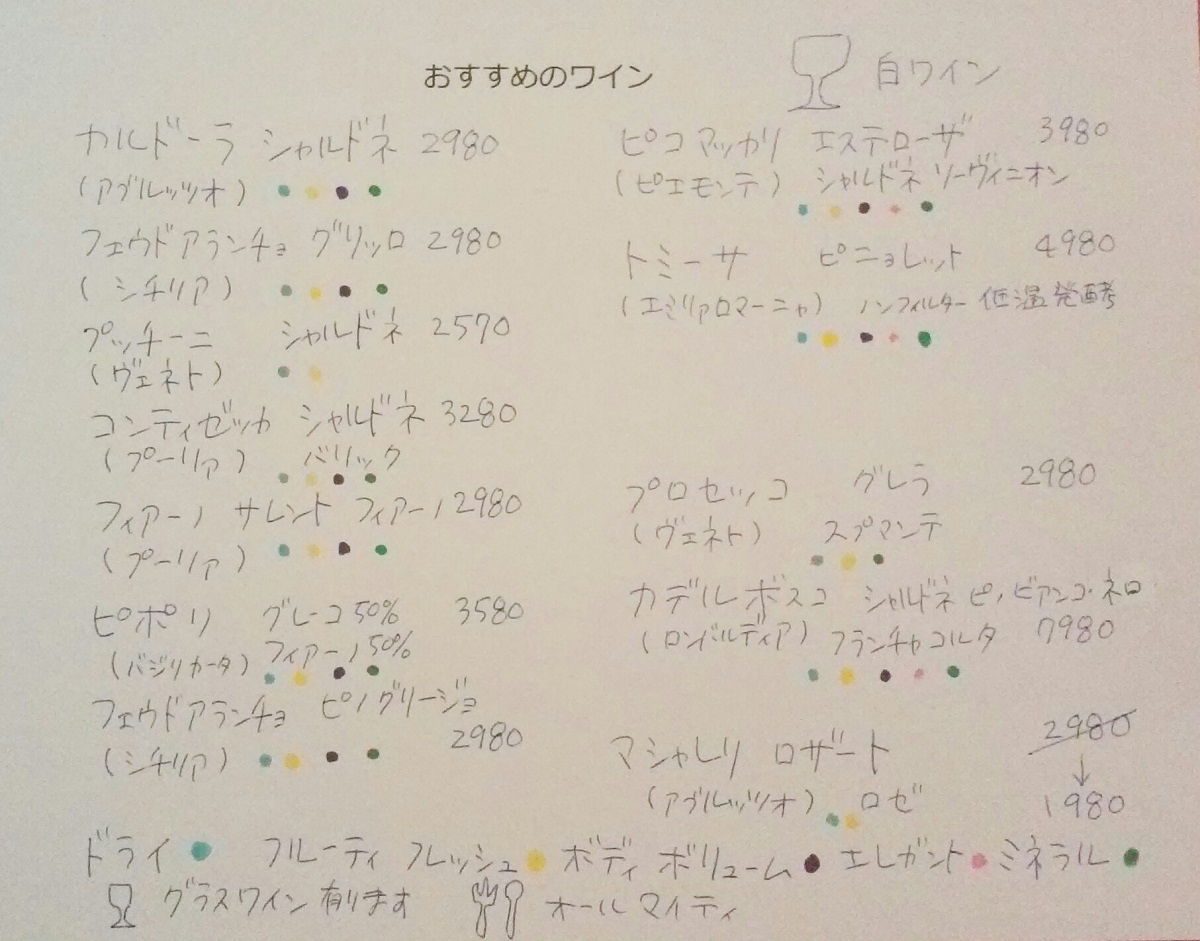 おすすめのワイン 白ワイン
カルドーラ シャルドネ 2980
(アブルッツオ)
フェウドアランチョ グリッロ 2980
(シチリア)
プッチーニ シャルドネ 2570
(ヴェネト)
コンティゼッカ シャルドネ 3280
(プーリァ) バリック
フィアーノ サレント フィアーノ 2980
(プーリァ)
ピポリ グレーコ50% 3580
(バジリカータ) フィアーノ50%
フェウドアランチョ ピノグリージョ
(シチリア) 2980
ピコマッカリ エステローザ 3980
(ピエモンテ) シャルドネ ソーヴィニオン
トミーサ ピニョレット 4980
(エミリァロマーニャ) ノンフィルター 低温発酵
プロセッコ グレラ 2980
(ヴェネト) スプマンテ
カデルボスコ シャルドネ ピノ、ビアンコ・ネロ
(ロンバルディア) フランチャコルタ 7980
マシャレリ ロザート 2980
↓
(アブルッツオ) ロゼ 1980
ドライ フルーティ フレッシュ ボディ ボリューム エレガント ミネラル
グラスワイン有ります オールマイティ